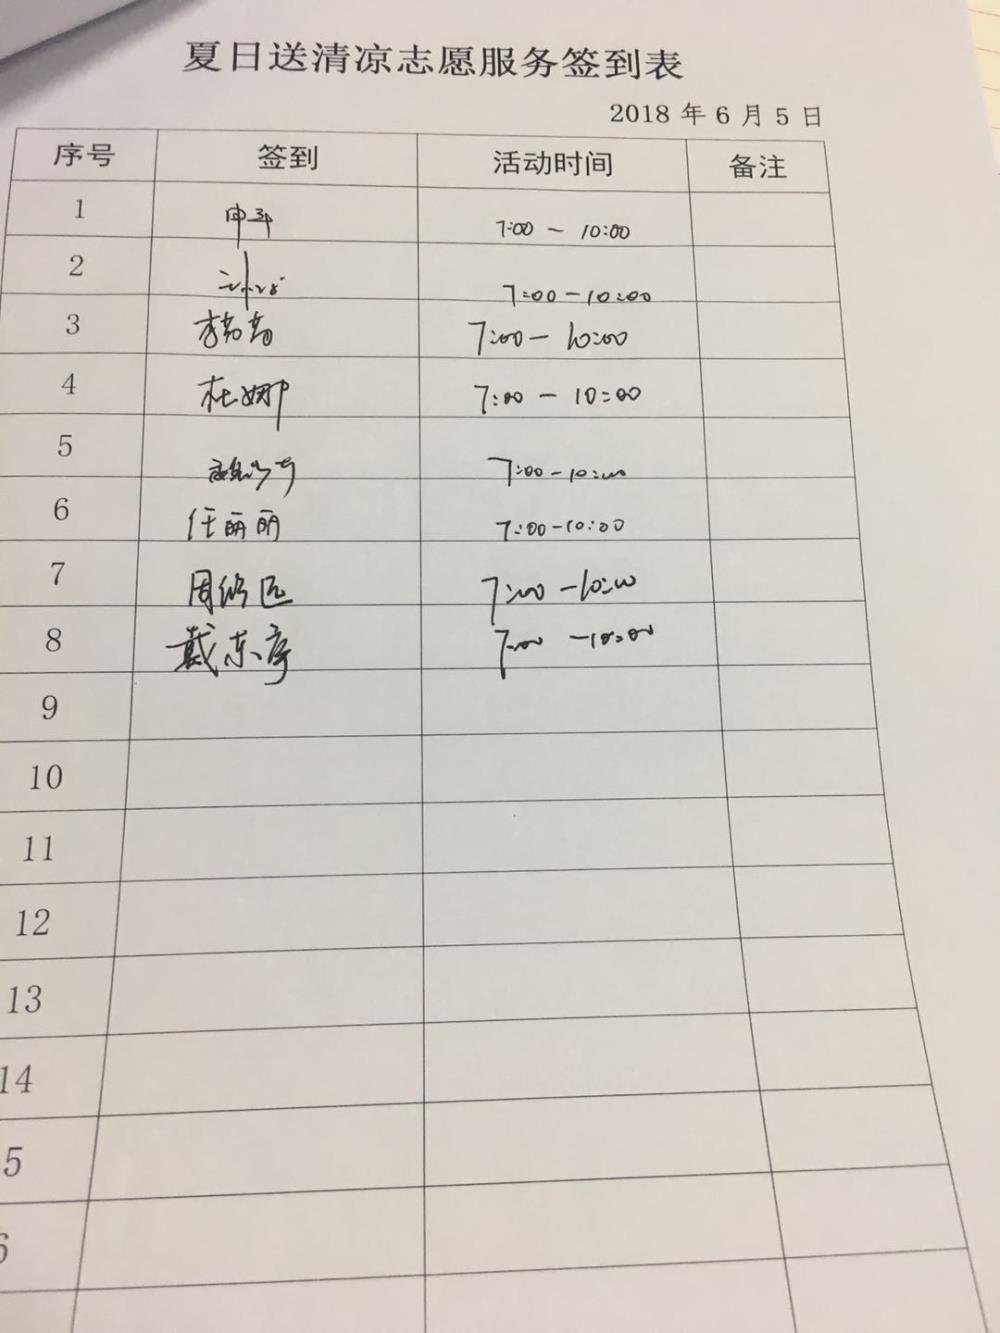 夏日送清凉志愿服务签到表
2018 年 6 月 5 日
序号 签到 活动时间 备注
1 7:00 — 10:00
2 7:00 — 10:00
3 7:00 — 10:00
4 杜娜 7:00 — 10:00
5 7:00 — 10:00
6 任丽丽 7:00 — 10:00
7 周 7:00 — 10:00
8 戴东 7:00 — 10:00
9
10
11
12
13
14
5
6